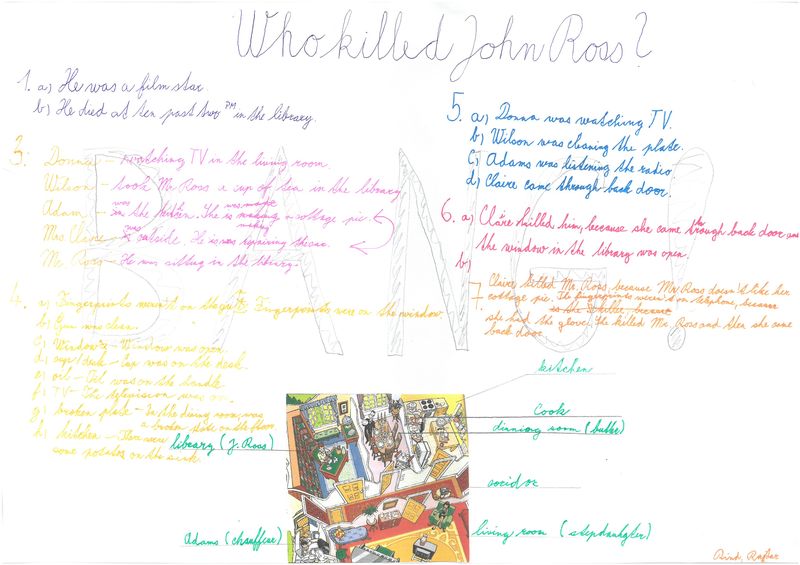 Who killed John Ross?
1. a) He was a film star.
b) He died at ten past two PM in the library.
3. Donna - watching TV in the living room.
Wilson - took Mr Ross a cup of tea in the library
Adam - was in the kitchen. The is making a cottage pie.
Mrs Claire - was outside. He is repairing the car.
Mr Ross - He was sitting in the library.
4. a) Fingerprints weren't on the Fingerprints were on the window.
b) Gun was clean.
c) Window - Window was open.
d) cup/desk - Cup was on the desk.
e) oil - Oil was on the handle.
f) TV - The television was on.
g) broken plate - In the dining room was
a broken plate on the floor.
h) kitchen - There were
some potatoes on the sink.
5. a) Donna was watching TV.
b) Wilson was cleaning the plate.
c) Adams was listening the radio.
d) Claire came through back door.
6. a) Claire killed him, because she came through back door and
the window in the library was open.
b)
7 Claire killed Mr. Ross, because Mr Ross doesn't like her
cottage pie. The fingerprints weren't on telephone, because
is she killer, because
she had the glove. The killed Mr. Ross and then she came
back door.
BANG!
kitchen
Cook
dinning room (butler)
library (J. Ross)
coridor
living room (stepdauhgter)
Adams (chauffeur)